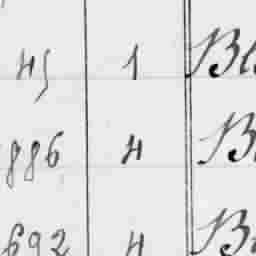 45 1
886 4
692 4